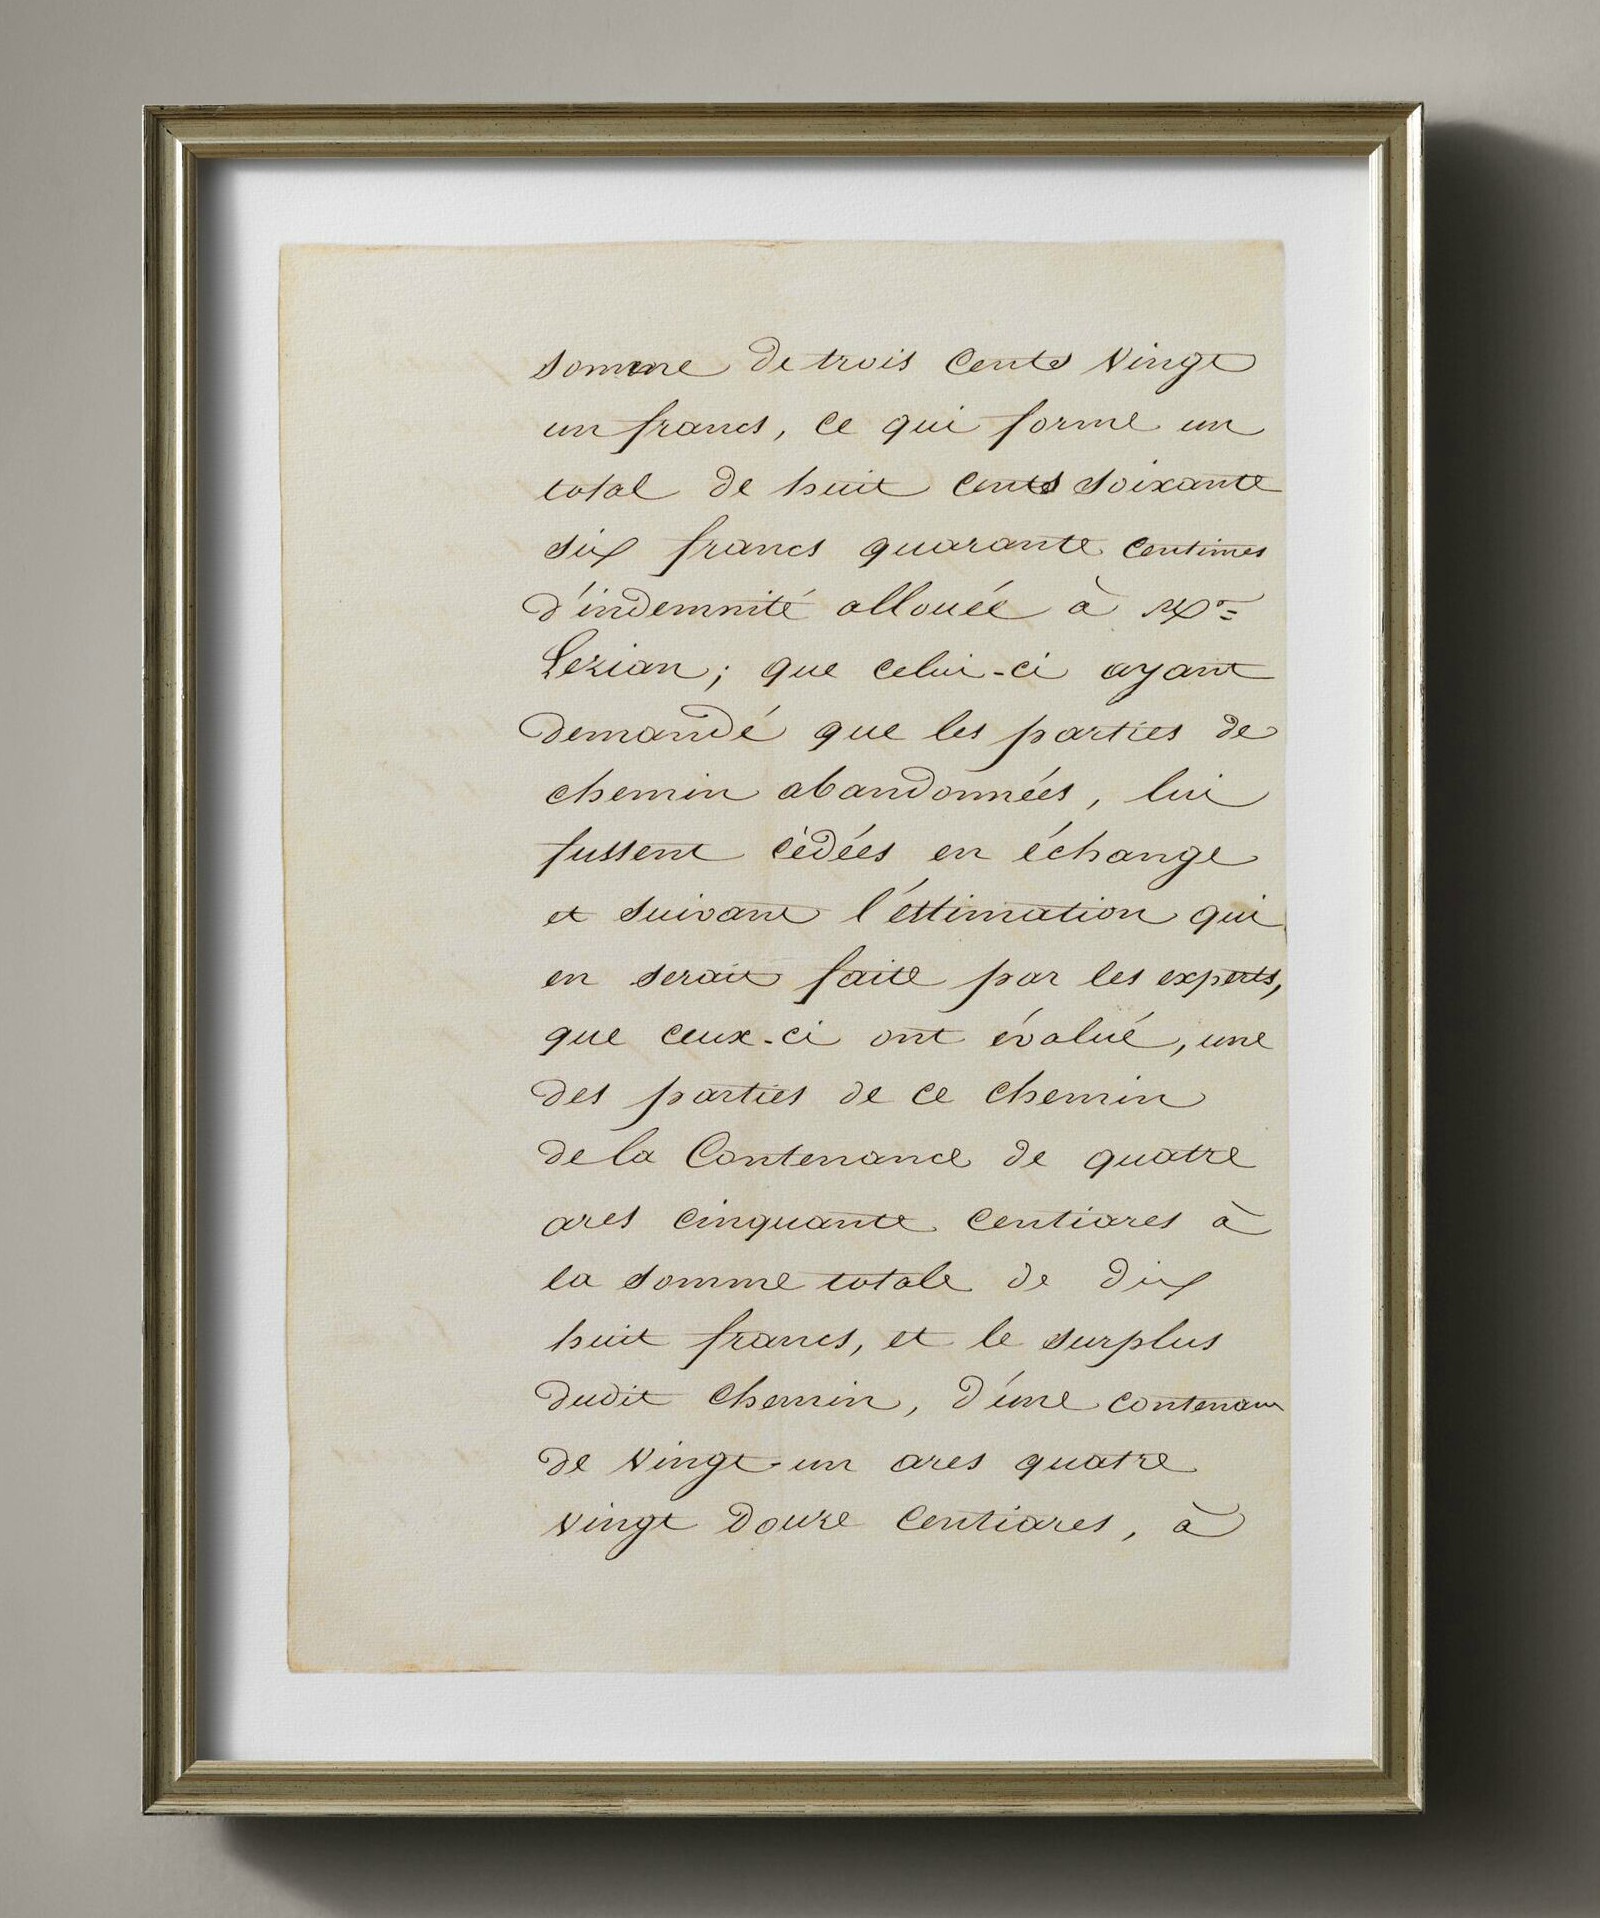 somme de trois cents vingt
un francs, ce qui forme un
total de huit cents soixante
six francs quarante centimes
d'indemnité allouée à Mr
Lezian; que celui-ci ayant
demandé que les parties de
chemin abandonnées, lui
fussent cèdées en échange
et suivant l'éstimation qui
en serait faite par les experts,
que ceux-ci ont évalué, une
des parties de ce chemin
de la Contenance de quatre
ares cinquante centiares à
la somme totale de dix
huit francs, et le surplus
dudit chemin, d'une contenan
de vingt-un ares quatre
vingt douze centiares, à